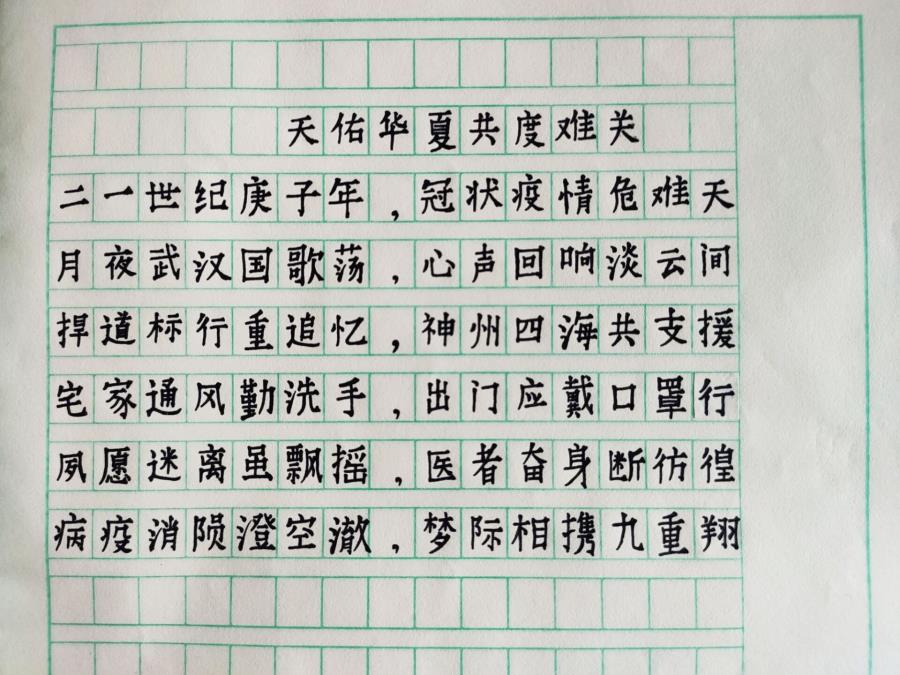 天佑华夏共度难关
二一世纪庚子年，冠状疫情危难天
月夜武汉国歌荡，心声回响淡云间
捍道标行重追忆，神州四海共支援
宅家通风勤洗手，出门应戴口罩行
夙愿迷离虽飘摇，医者奋身断彷徨
病疫消陨澄空澈，梦际相携九重翔